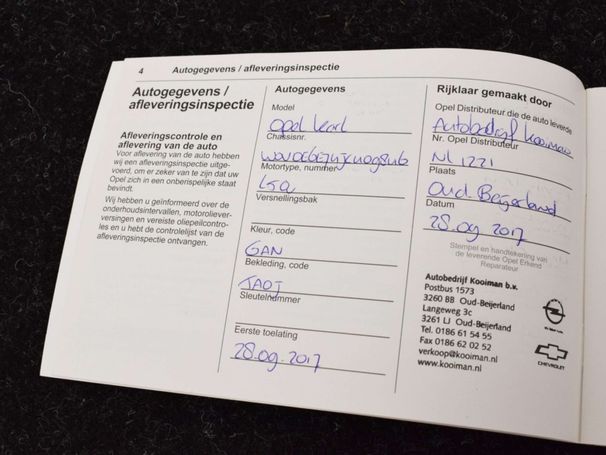 4 Autogegevens / afleveringsinspectie
Autogegevens /
afleveringsinspectie
Afleveringscontrole en
aflevering van de auto
Voor aflevering van de auto hebben
wij een afleveringsinspectie uitge-
voerd, om er zeker van te zijn dat uw
Opel zich in een onberispelijke staat
bevindt.
Wij hebben u geïnformeerd over de
onderhoudsintervallen, motoroliever-
versingen en vereiste oliepeilcontro-
les en u hebt de controlelijst van de
afleveringsinspectie ontvangen.
Autogegevens
Model
Opel Karl
Chassisnr.
Motortype, nummer
Versnellingsbak
Kleur, code
GAN
Bekleding, code
TAOJ
Sleutelnummer
Eerste toelating
28.09.2017
Rijklaar gemaakt door
Opel Distributeur die de auto leverde
Autobedrijf Kooiman
Nr. Opel Distributeur
NL 1221
Plaats
Oud Beijerland
Datum
28.09 2017
Stempel en handtekening van
de leverende Opel Erkend
Reparateur
Autobedrijf Kooiman b.v.
Postbus 1573
3260 BB Oud-Beijerland
Langeweg 3c
3261 LJ Oud-Beijerland
Tel. 0186 61 54 55
Fax 0186 62 02 52
verkoop@kooiman.nl
www.kooiman.nl
CHEVROLET